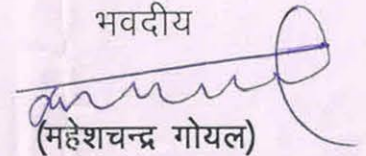 भवदीय
(महेशचन्द्र गोयल)